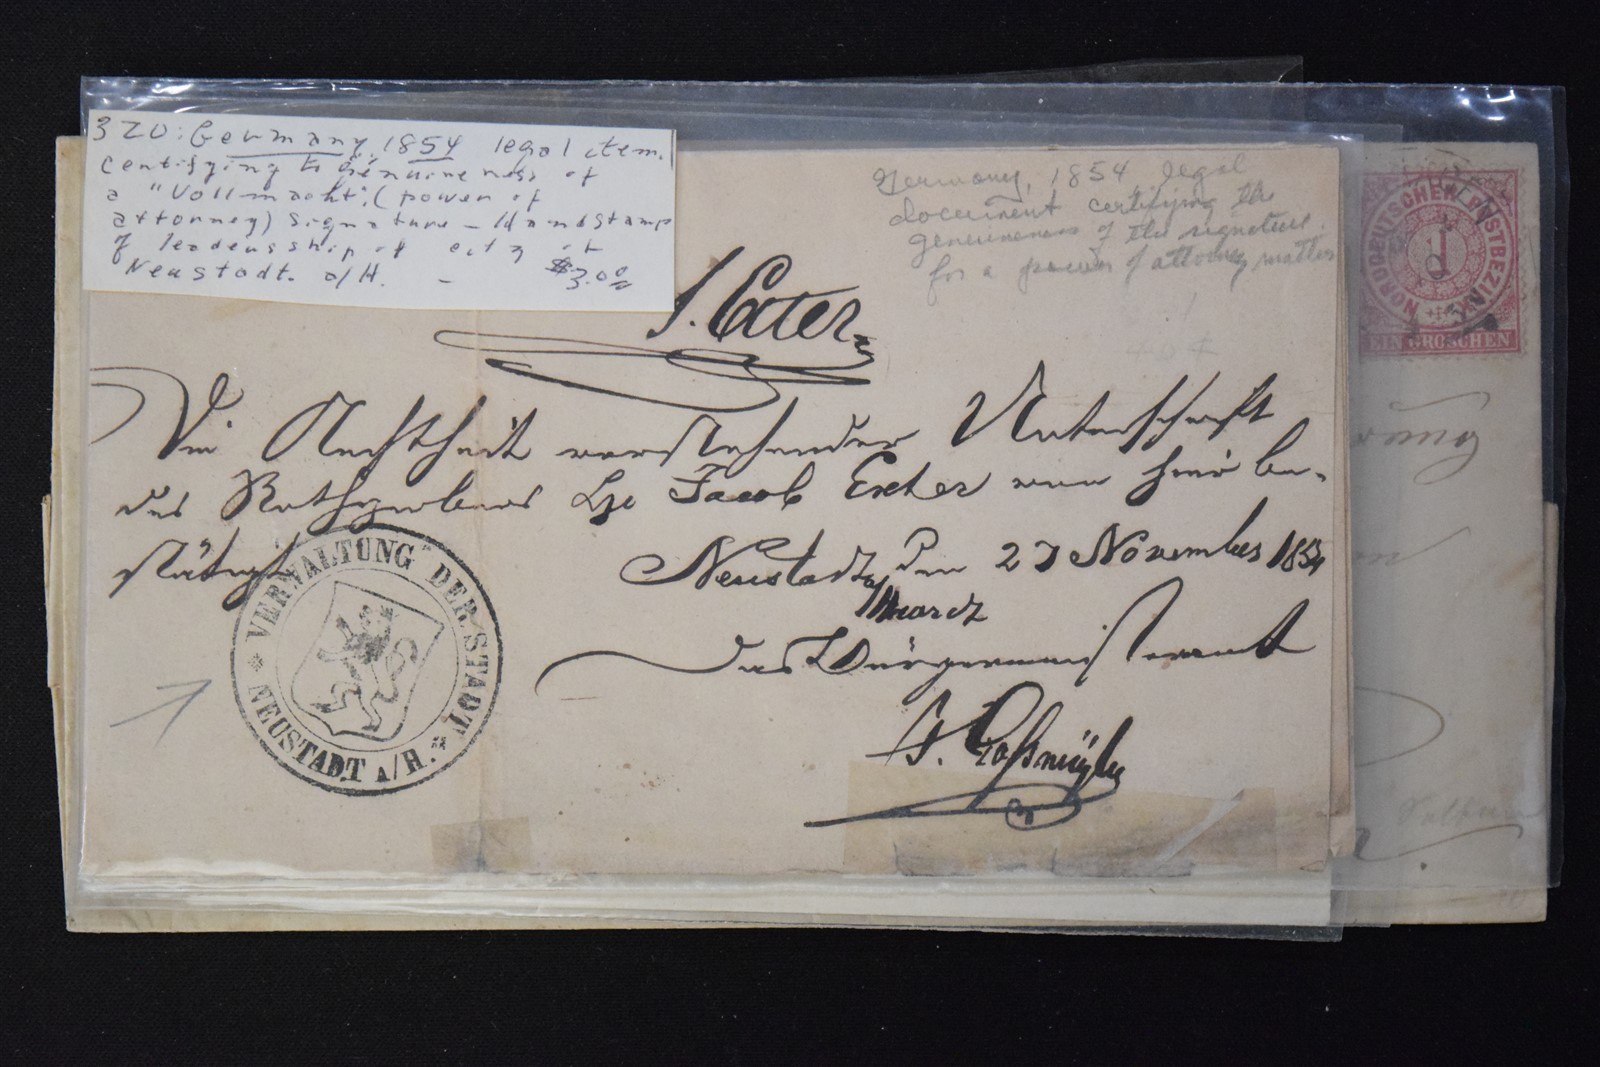 320: Germany, 1854 legal item.
certifying to genuineness of
a "Vollmacht": (power of
attorney) signature - Handstamp
of leadersship of city of
Neustadt. a/H. - $3.00
Germany, 1854 legal
document certifying the
genuineness of the signature.
for a power of attorney matter
J. Exter
Die Aechtheit vorstehender Unterschrift
des Rothgerbers Jacob Exter von hier be-
stätigt
Neustadt, den 27 November 1854
a/Haardt
Das Bürgermeisteramt
VERWALTUNG DER STADT
NEUSTADT A/H.
NORDDEUTSCHER POSTBEZIRK
1
EIN GROSCHEN